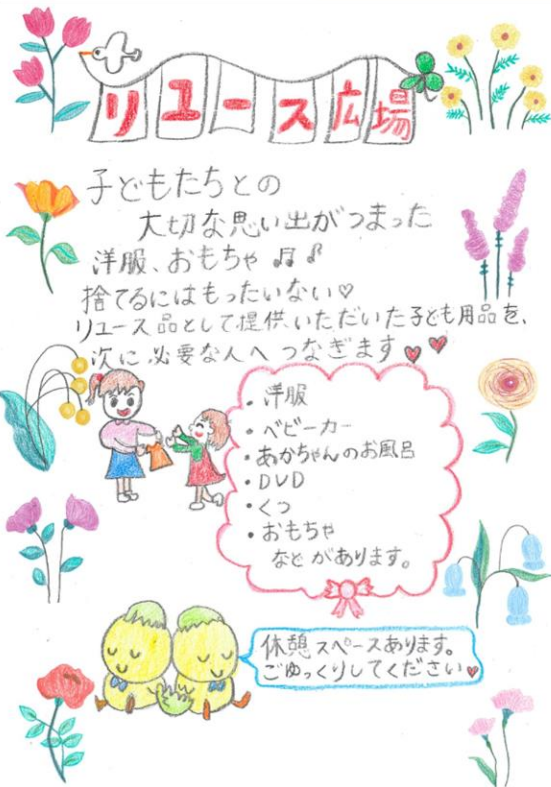 リユース広場
子どもたちとの
大切な思い出がつまった
洋服、おもちゃ♫♪
捨てるにはもったいない♡
リユース品として提供いただいた子ども用品を、
次に必要な人へつなぎます♥♥
・洋服
・ベビーカー
・あかちゃんのお風呂
・DVD
・くつ
・おもちゃ
などがあります。
休憩スペースあります。
ごゆっくりしてください♥